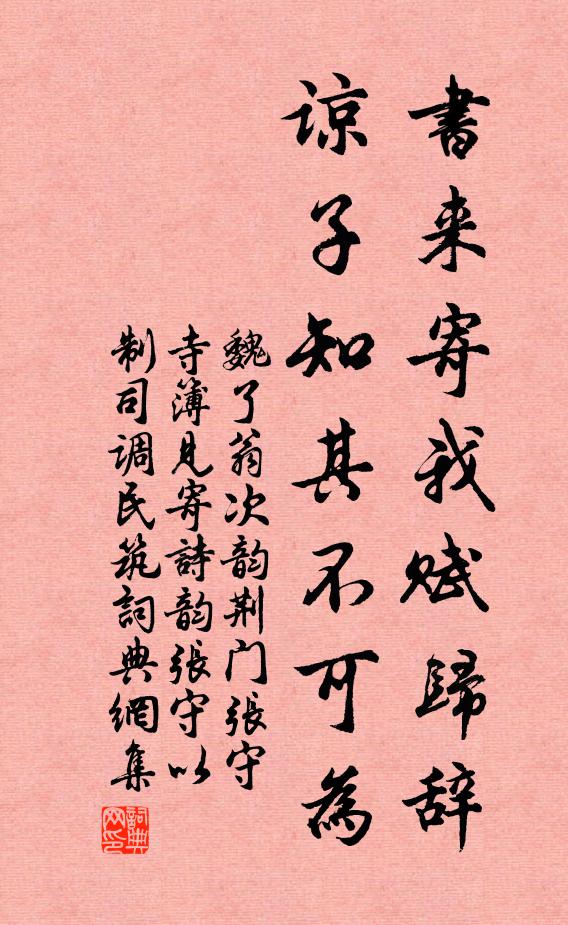 書来寄我赋歸辞
谅子知其不可為
魏了翁次韵荆门張守
寺簿見寄詩韵張守以
制司调民筑詞典網集
詞典网印